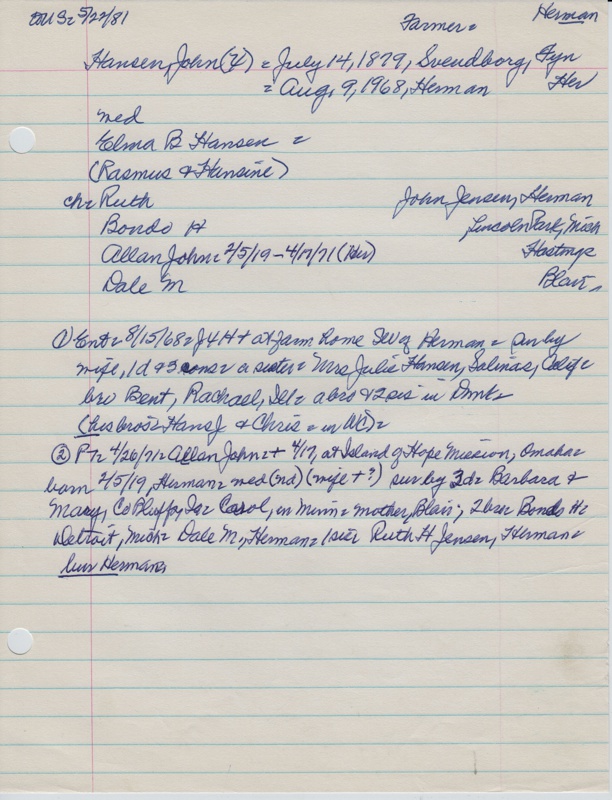 5/22/81
Farmer =
Herman
Hansen, John (4) = July 14, 1879, Svendborg, Fyn
= Aug. 9, 1968, Herman Her
med
Elma B Hansen =
(Rasmus & Hansine)
ch= Ruth John Jensen, Herman
Bondo H Lincoln Park, Mich
Allan John = 2/5/19 - 4/17/71 (Her) Hastings
Dale M Blair,
① Ent = 8/15/68 = J4H + at farm home SW of Herman = sur by
wife, 1 d & 3 sons = a sister = Mrs Julia Hansen, Salinas, Calif =
bro Bent, Rachael, Ill = a bro & 2 sis in Dmk =
(his bros = Hans J & Chris = in WC) =
② PT = 4/26/71 = Allan John = + 4/17, at Island of Hope Mission, Omaha =
born 2/5/19, Herman = med (nd) (wife + ?) sur by 3d = Barbara &
Mary, Co Bluffs, Ia = Carol, in Minn = mother, Blair; 2 bro = Bondo H =
Detroit, Mich = Dale M., Herman = 1 sis = Ruth H Jensen, Herman =
bur Herman,